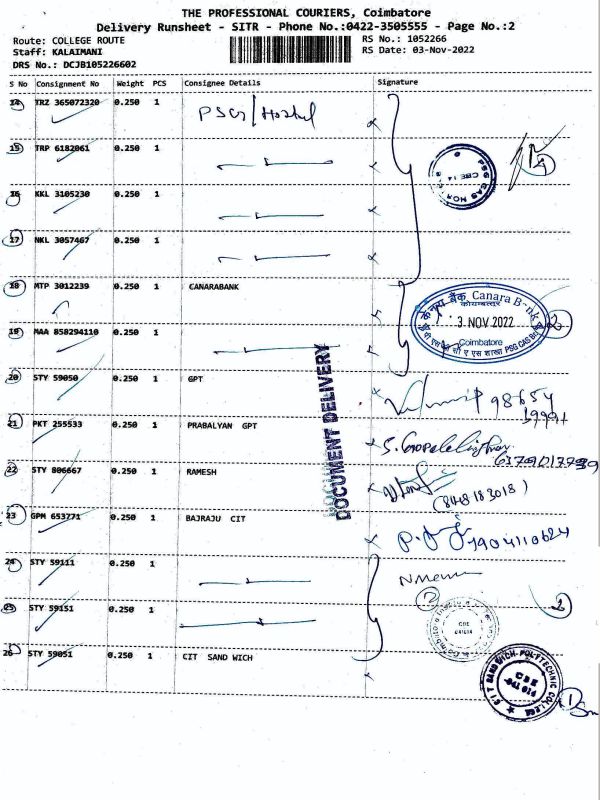 THE PROFESSIONAL COURIERS, Coimbatore
Delivery Runsheet - SITR - Phone No.:0422-3505555 - Page No.:2
Route: COLLEGE ROUTE
RS No.: 1052266
Staff: KALAIMANI
RS Date: 03-Nov-2022
DRS No.: DCJB105226602
S No Consignment No Weight PCS Consignee Details Signature
14 TRZ 365072320 0.250 1 PSG / Hostel
15 TRP 6182061 0.250 1
16 KKL 3105230 0.250 1
17 NKL 3057467 0.250 1
18 MTP 3012239 0.250 1 CANARABANK
केनरा बैंक Canara
3 NOV 2022
Coimbatore
2
19 MAA 858294110 0.250 1
20 STY 59050 0.250 1 GPT
98654
DOCUMENT DELIVERY
21 PKT 255533 0.250 1 PRABALYAN GPT
22 STY 806667 0.250 1 RAMESH
(8148183018)
23 GPM 653771 0.250 1 BAJRAJU CIT
24 STY 59111 0.250 1
25 STY 59151 0.250 1
2
26 STY 59051 0.250 1 CIT SAND WICH
1